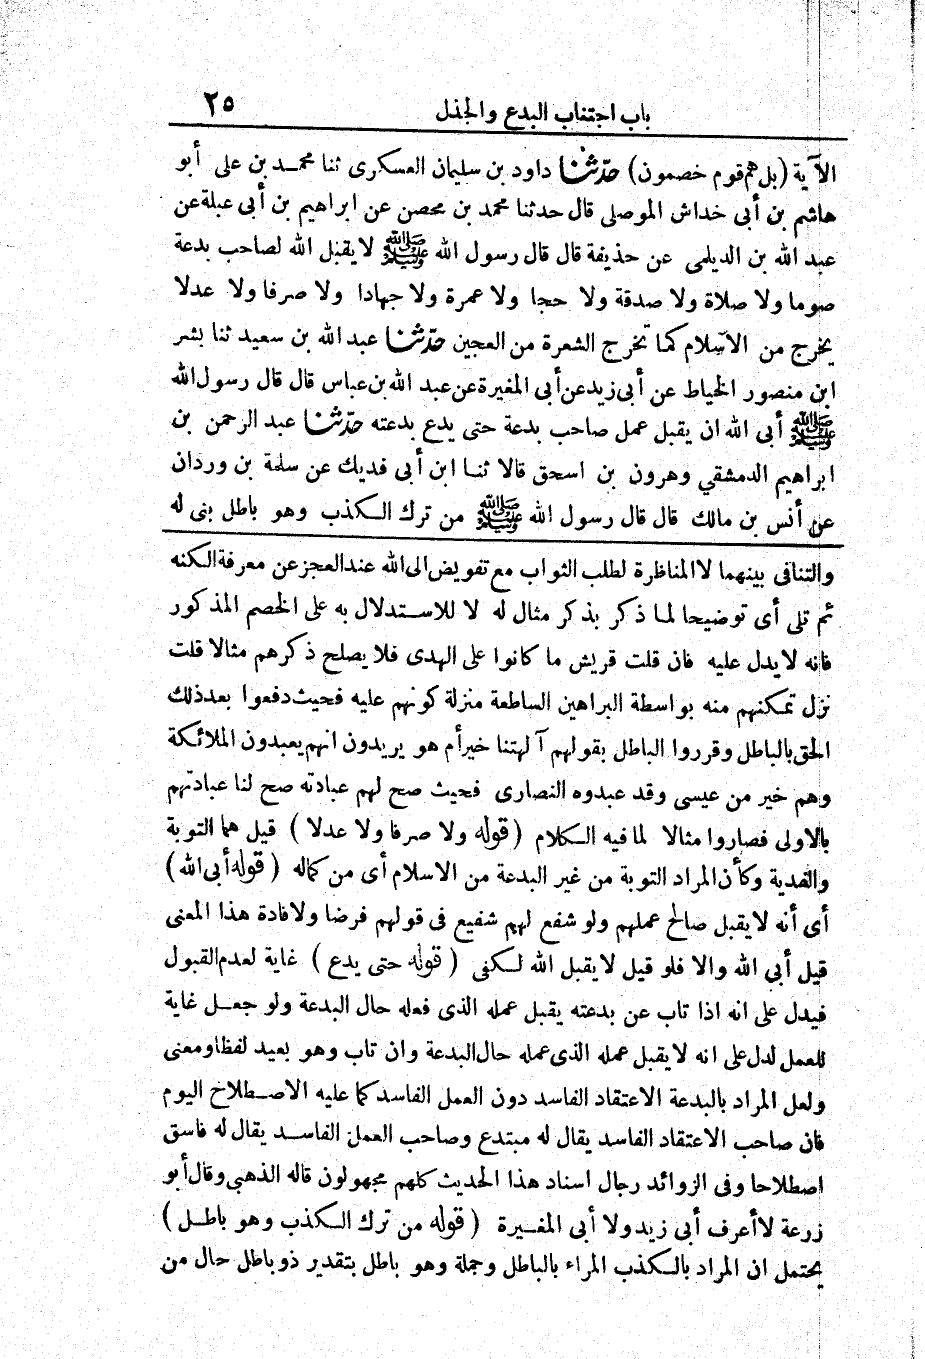 باب اجتناب البدع والجدل ٢٥
الآية (بل هم قوم خصمون) حدّثنا داود بن سليمان العسكرى ثنا محمد بن على أبو
هاشم بن أبى خداش الموصلى قال حدثنا محمد بن محصن عن ابراهيم بن أبى عبلة عن
عبد الله بن الديلمى عن حذيفة قال قال رسول الله ﷺ لا يقبل الله لصاحب بدعة
صوما ولا صلاة ولا صدقة ولا حجا ولا عمرة ولا جهادا ولا صرفا ولا عدلا
يخرج من الاسلام كما تخرج الشعرة من العجين حدّثنا عبد الله بن سعيد ثنا بشر
ابن منصور الخياط عن أبى زيد عن أبى المغيرة عن عبد الله بن عباس قال قال رسول الله
ﷺ أبى الله ان يقبل عمل صاحب بدعة حتى يدع بدعته حدّثنا عبد الرحمن بن
ابراهيم الدمشقي وهرون بن اسحق قالا ثنا ابن أبى فديك عن سلمة بن وردان
عن أنس بن مالك قال قال رسول الله ﷺ من ترك الكذب وهو باطل بنى له
والتنافى بينهما لا المناظرة لطلب الثواب مع تفويض الى الله عند العجز عن معرفة الكنه
ثم تلى أى توضيحا لما ذكر بذكر مثال له لا للاستدلال به على الخصم المذكور
فانه لا يدل عليه فان قلت قريش ما كانوا على الهدى فلا يصلح ذكرهم مثالا قلت
نزل تمكنهم منه بواسطة البراهين الساطعة منزلة كونهم عليه فحيث دفعوا بعد ذلك
الحق بالباطل وقرروا الباطل بقولهم آلهتنا خير أم هو يريدون انهم يعبدون الملائكة
وهم خير من عيسى وقد عبدوه النصارى فحيث صح لهم عبادته صح لنا عبادتهم
بالاولى فصاروا مثالا لما فيه الكلام (قوله ولا صرفا ولا عدلا) قيل هما التوبة
والفدية وكأن المراد التوبة من غير البدعة من الاسلام أى من كماله (قوله أبى الله)
أى أنه لا يقبل صالح عملهم ولو شفع لهم شفيع فى قولهم فرضا ولافادة هذا المعنى
قيل أبي الله والا فلو قيل لا يقبل الله لكفى (قوله حتى يدع) غاية لعدم القبول
فيدل على انه اذا تاب عن بدعته يقبل عمله الذى فعله حال البدعة ولو جعل غاية
للعمل لدل على انه لا يقبل عمله الذى عمله حال البدعة وان تاب وهو بعيد لفظا ومعنى
ولعل المراد بالبدعة الاعتقاد الفاسد دون العمل الفاسد كما عليه الاصطلاح اليوم
فان صاحب الاعتقاد الفاسد يقال له مبتدع وصاحب العمل الفاسد يقال له فاسق
اصطلاحا وفى الزوائد رجال اسناد هذا الحديث كلهم مجهولون قاله الذهبى وقال أبو
زرعة لا أعرف أبى زيد ولا أبى المغيرة (قوله من ترك الكذب وهو باطل)
يحتمل ان المراد بالكذب المراء بالباطل وجملة وهو باطل بتقدير ذو باطل حال من